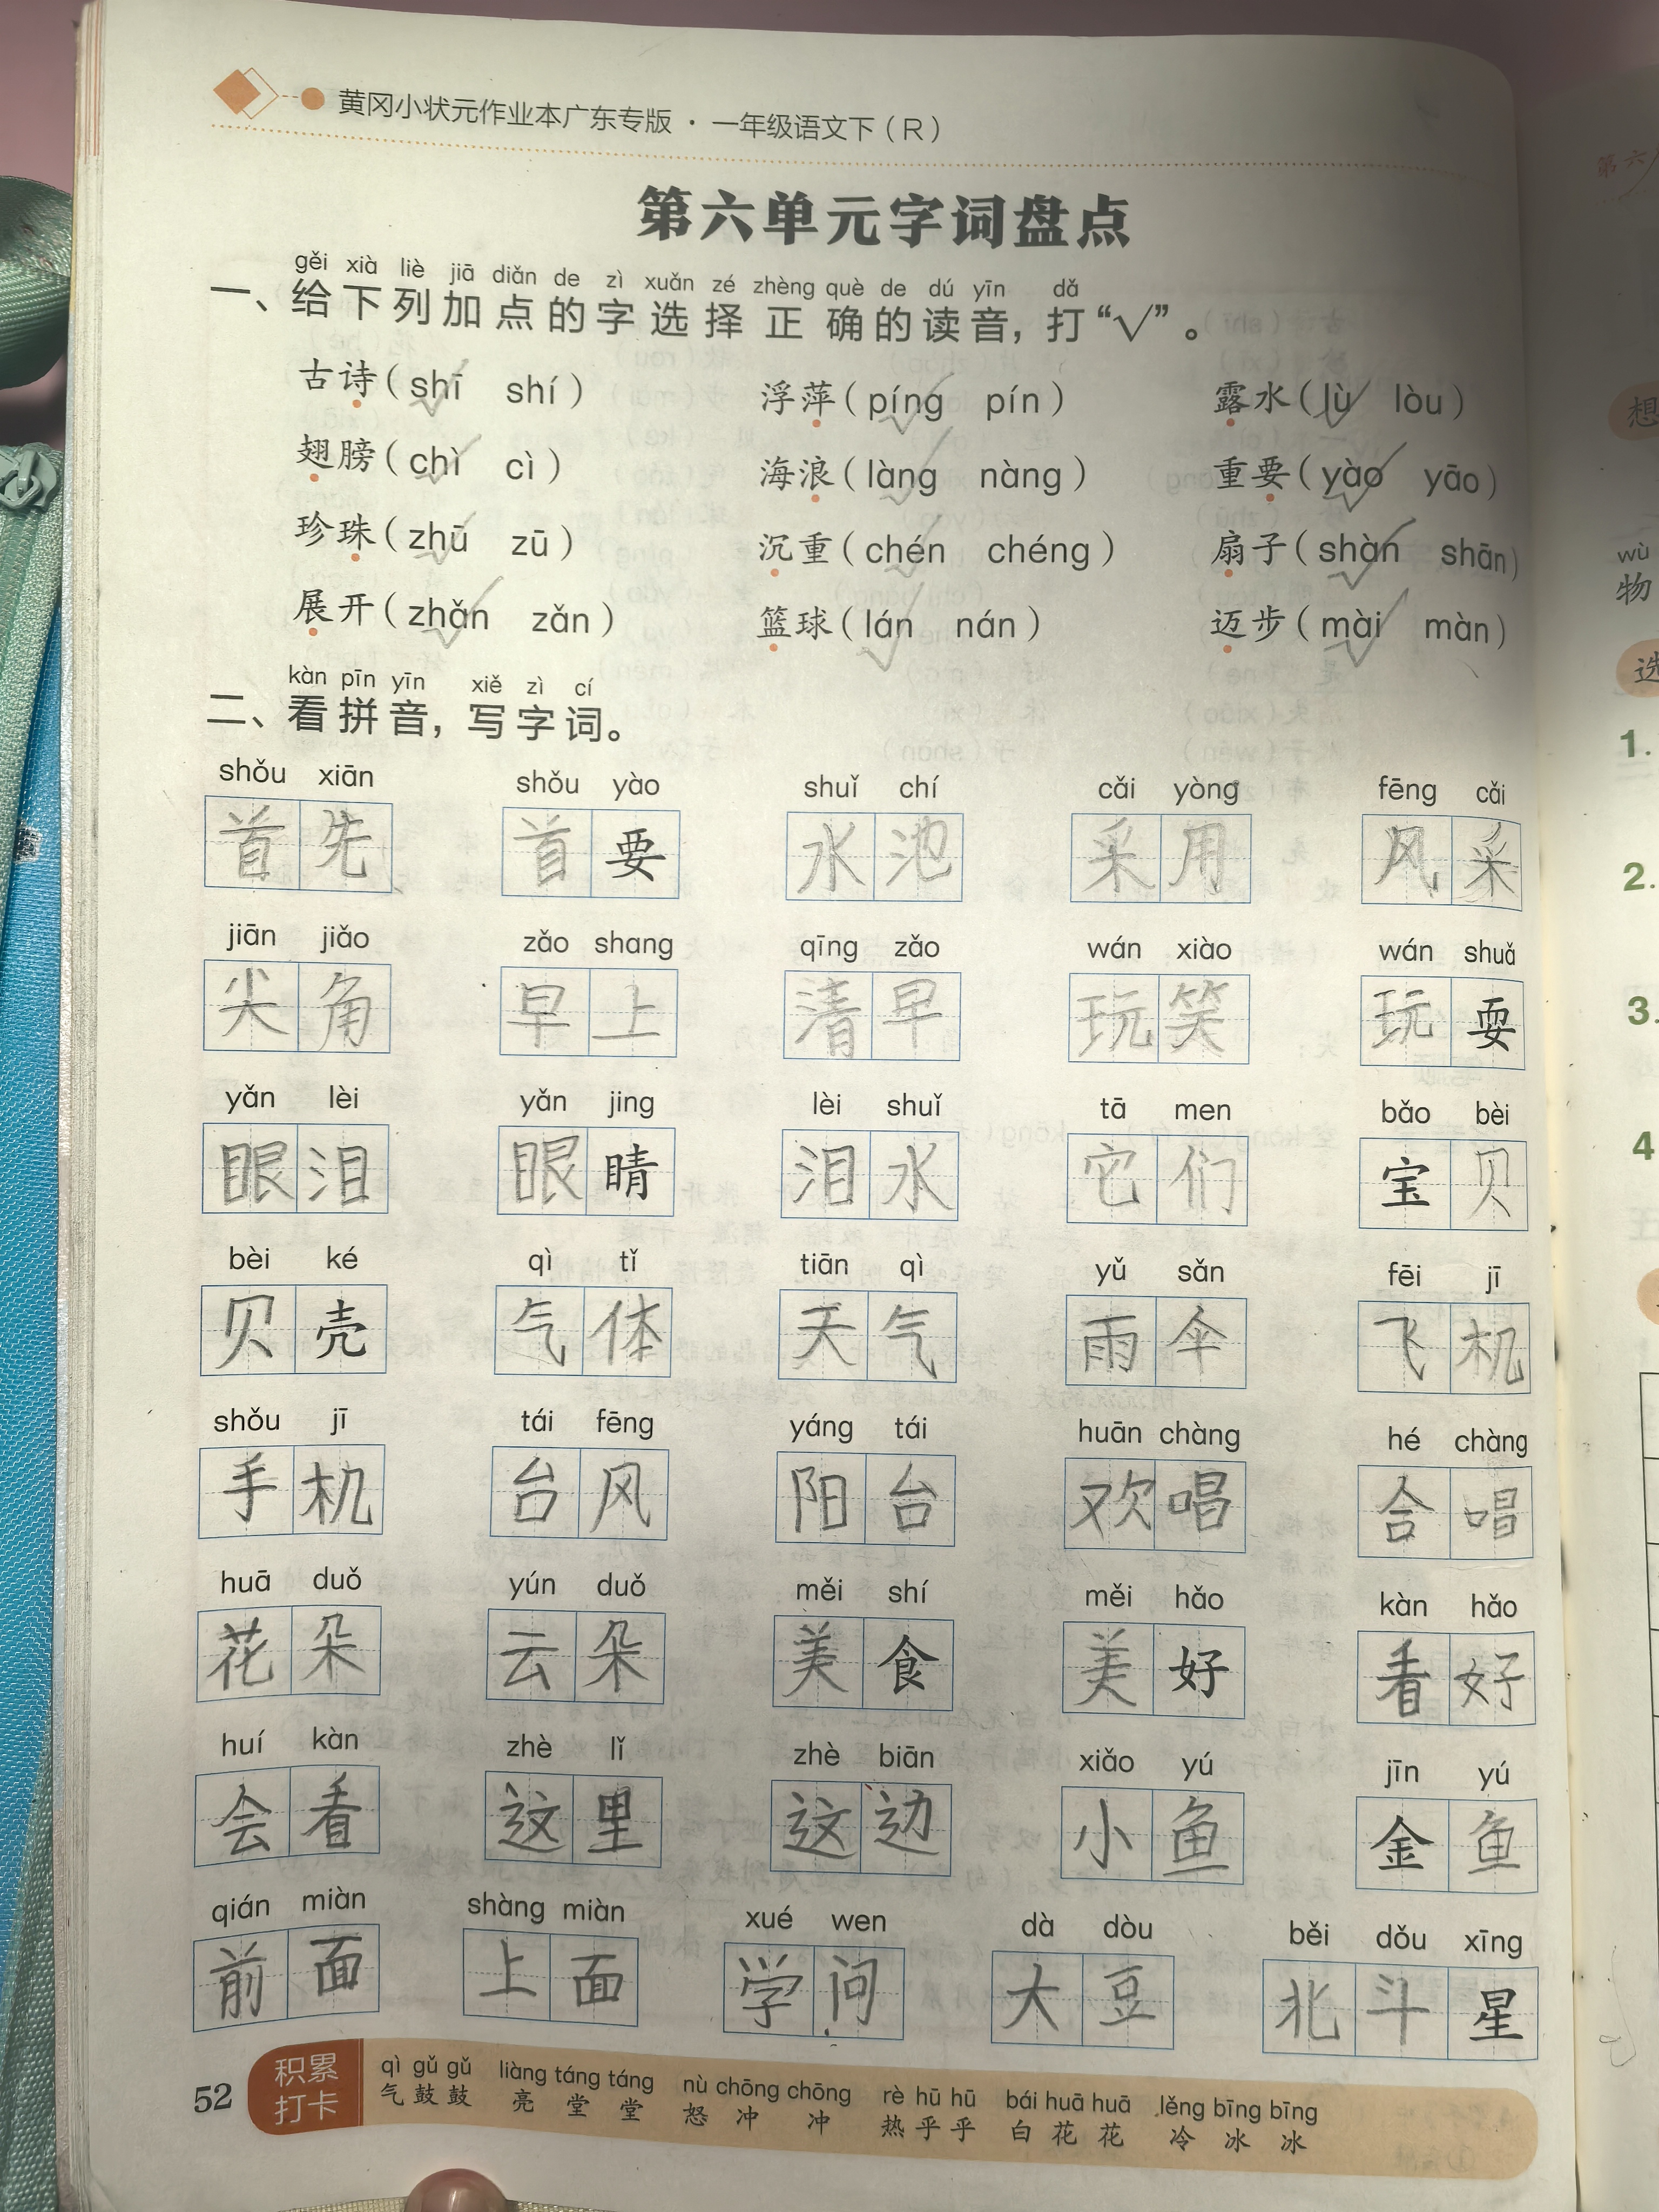 黄冈小状元作业本广东专版 · 一年级语文下（R）
第六单元字词盘点
gěi xià liè jiā diǎn de zì xuǎn zé zhèng què de dú yīn dǎ
一、给下列加点的字选择正确的读音，打“√”。
古诗（shī✓ shí） 浮萍（píng✓ pín） 露水（lù✓ lòu）
翅膀（chì✓ cì） 海浪（làng✓ nàng） 重要（yào✓ yāo）
珍珠（zhū✓ zū） 沉重（chén✓ chéng） 扇子（shàn✓ shān）
展开（zhǎn✓ zǎn） 篮球（lán✓ nán） 迈步（mài✓ màn）
kàn pīn yīn xiě zì cí
二、看拼音，写字词。
shǒu xiān shǒu yào shuǐ chí cǎi yòng fēng cǎi
首先 首要 水池 采用 风采
jiān jiǎo zǎo shang qīng zǎo wán xiào wán shuǎ
尖角 早上 清早 玩笑 玩耍
yǎn lèi yǎn jing lèi shuǐ tā men bǎo bèi
眼泪 眼睛 泪水 它们 宝贝
bèi ké qì tǐ tiān qì yǔ sǎn fēi jī
贝壳 气体 天气 雨伞 飞机
shǒu jī tái fēng yáng tái huān chàng hé chàng
手机 台风 阳台 欢唱 合唱
huā duǒ yún duǒ měi shí měi hǎo kàn hǎo
花朵 云朵 美食 美好 看好
huí kàn zhè lǐ zhè biān xiǎo yú jīn yú
会看 这里 这边 小鱼 金鱼
qián miàn shàng miàn xué wen dà dòu běi dǒu xīng
前面 上面 学问 大豆 北斗星
52
积累
打卡
qì gǔ gǔ liàng táng táng nù chōng chōng rè hū hū bái huā huā lěng bīng bīng
气鼓鼓 亮堂堂 怒冲冲 热乎乎 白花花 冷冰冰
第六
想
wù
物
选
1.
2.
3.
4